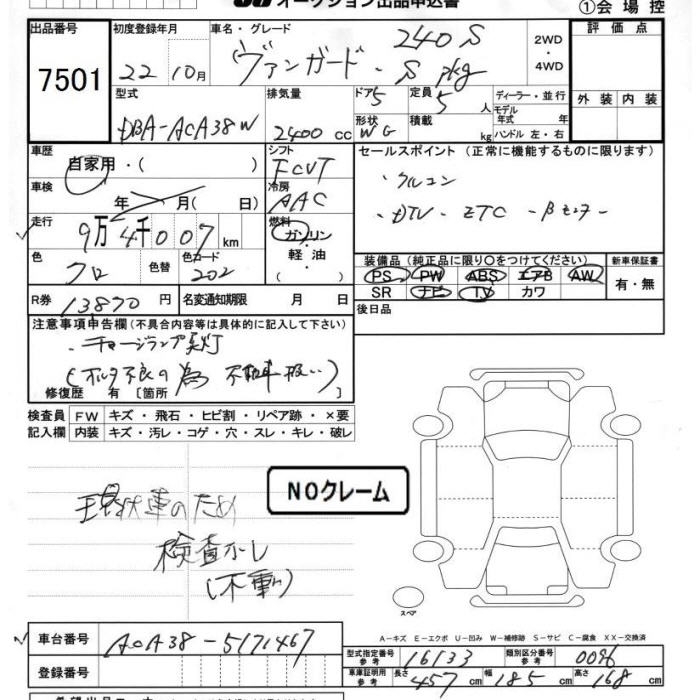 オークション出品申込書
①会場控
出品番号 初度登録年月 車名・グレード 評価点
7501 22 10月 ヴァンガード・ 240S S pkg 2WD・4WD
型式 排気量 ドア 5 定員 5人 ディーラー・並行 外装 内装
DBA-ACA38W 2400cc 形状 WG 積載 kg モデル年式 年 ハンドル 左・右
車歴 シフト セールスポイント(正常に機能するものに限ります)
自家用・( ) FCVT
車検 冷房 ・クルコン
年 月( 日) AAC ・DTV ・ETC
走行 燃料
9万4千007km ガソリン・軽油・( )
色 色替 色コード 装備品(純正品に限り○をつけてください) 新車保証書
クロ 202 PS PW ABS エアB AW 有・無
R券 13870円 名変通知期限 月 日 SR ナビ TV カワ
後日品
注意事項申告欄(不具合内容等は具体的に記入して下さい)
・チャージランプ点灯
(オルタ不良の為 不動車扱い)
修復歴 有 [箇所 ]
検査員 FW キズ・飛石・ヒビ割・リペア跡・×要
記入欄 内装 キズ・汚レ・コゲ・穴・スレ・キレ・破レ
NOクレーム
現状車のため
検査ナシ
(不動)
スペア
A-キズ E-エクボ U-凹み W-補修跡 S-サビ C-腐食 XX-交換済
車台番号 ACA38-5171467
型式指定番号 参考 16133 類別区分番号 参考 0096
登録番号 車庫証明用 参考 長さ 457cm 幅 185cm 高さ 168cm